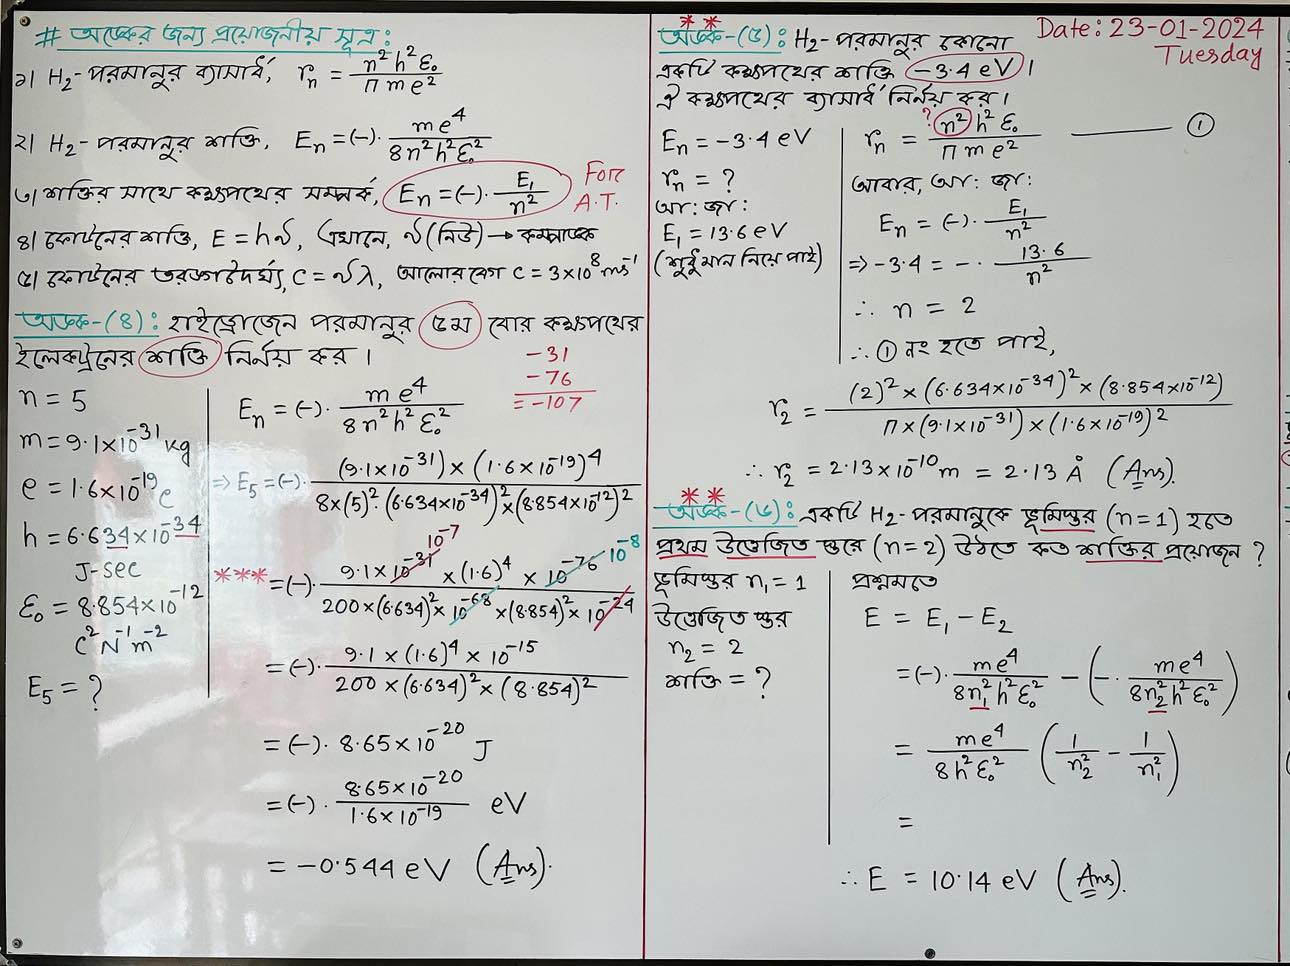 # অংকের জন্য প্রয়োজনীয় সূত্র:
১। H₂-পরমানুর ব্যাসার্ধ, rₙ = n²h²ε₀ / π m e²
২। H₂-পরমানুর শক্তি, Eₙ = (-)· me⁴ / 8n²h²ε₀²
৩। শক্তির সাথে কক্ষপথের সম্পর্ক, Eₙ = (-)· E₁ / n² For A.T.
৪। ফোটনের শক্তি, E = hν, এখানে, ν (নিউ) → কম্পাঙ্ক
৫। ফোটনের তরঙ্গদৈর্ঘ্য, c = νλ, আলোর বেগ c = 3×10⁸ ms⁻¹
অংক-(৪): হাইড্রোজেন পরমানুর ৫ম বোর কক্ষপথের
ইলেকট্রনের শক্তি নির্নয় কর।
-31
-76
= -107
n = 5
m = 9.1×10⁻³¹ kg
e = 1.6×10⁻¹⁹ c
h = 6.634×10⁻³⁴
J-sec
ε₀ = 8.854×10⁻¹²
C² N⁻¹ m⁻²
E₅ = ?
Eₙ = (-)· me⁴ / 8n²h²ε₀²
⇒ E₅ = (-)· (9.1×10⁻³¹) × (1.6×10⁻¹⁹)⁴ / 8×(5)²·(6.634×10⁻³⁴)²×(8.854×10⁻¹²)²
10⁻⁷
*** = (-)· 9.1×10⁻³¹ ×(1.6)⁴ × 10⁻⁷⁶ 10⁻⁸ / 200×(6.634)²×10⁻⁶⁸×(8.854)²×10⁻²⁴
= (-)· 9.1×(1.6)⁴×10⁻¹⁵ / 200×(6.634)²×(8.854)²
= (-)· 8.65×10⁻²⁰ J
= (-)· 8.65×10⁻²⁰ / 1.6×10⁻¹⁹ eV
= -0.544 eV (Ans).
Date: 23-01-2024
Tuesday
**
অংক-(৫): H₂-পরমানুর কোনো
একটি কক্ষপথের শক্তি -3.4 eV।
ঐ কক্ষপথের ব্যাসার্ধ নির্নয় কর।
Eₙ = -3.4 eV
rₙ = ?
আ: জা:
E₁ = 13.6 eV
(শুধু মান নিয়ে পাই)
rₙ = ? n²h²ε₀ / π m e² —— ①
আবার, আ: জা:
Eₙ = (-)· E₁ / n²
⇒ -3.4 = -· 13.6 / n²
∴ n = 2
∴ ① নং হতে পাই,
r₂ = (2)²×(6.634×10⁻³⁴)²×(8.854×10⁻¹²) / π×(9.1×10⁻³¹)×(1.6×10⁻¹⁹)²
∴ r₂ = 2.13×10⁻¹⁰ m = 2.13 Å (Ans).
**
অংক-(৬): একটি H₂-পরমানুকে ভূমিস্তর (n=1) হতে
প্রথম উত্তেজিত স্তরে (n=2) উঠতে কত শক্তির প্রয়োজন ?
ভূমিস্তর n₁ = 1
উত্তেজিত স্তর
n₂ = 2
শক্তি = ?
প্রশ্নমতে
E = E₁ - E₂
= (-)· me⁴ / 8n₁²h²ε₀² - (-· me⁴ / 8n₂²h²ε₀²)
= me⁴ / 8h²ε₀² (1/n₂² - 1/n₁²)
=
∴ E = 10.14 eV (Ans).